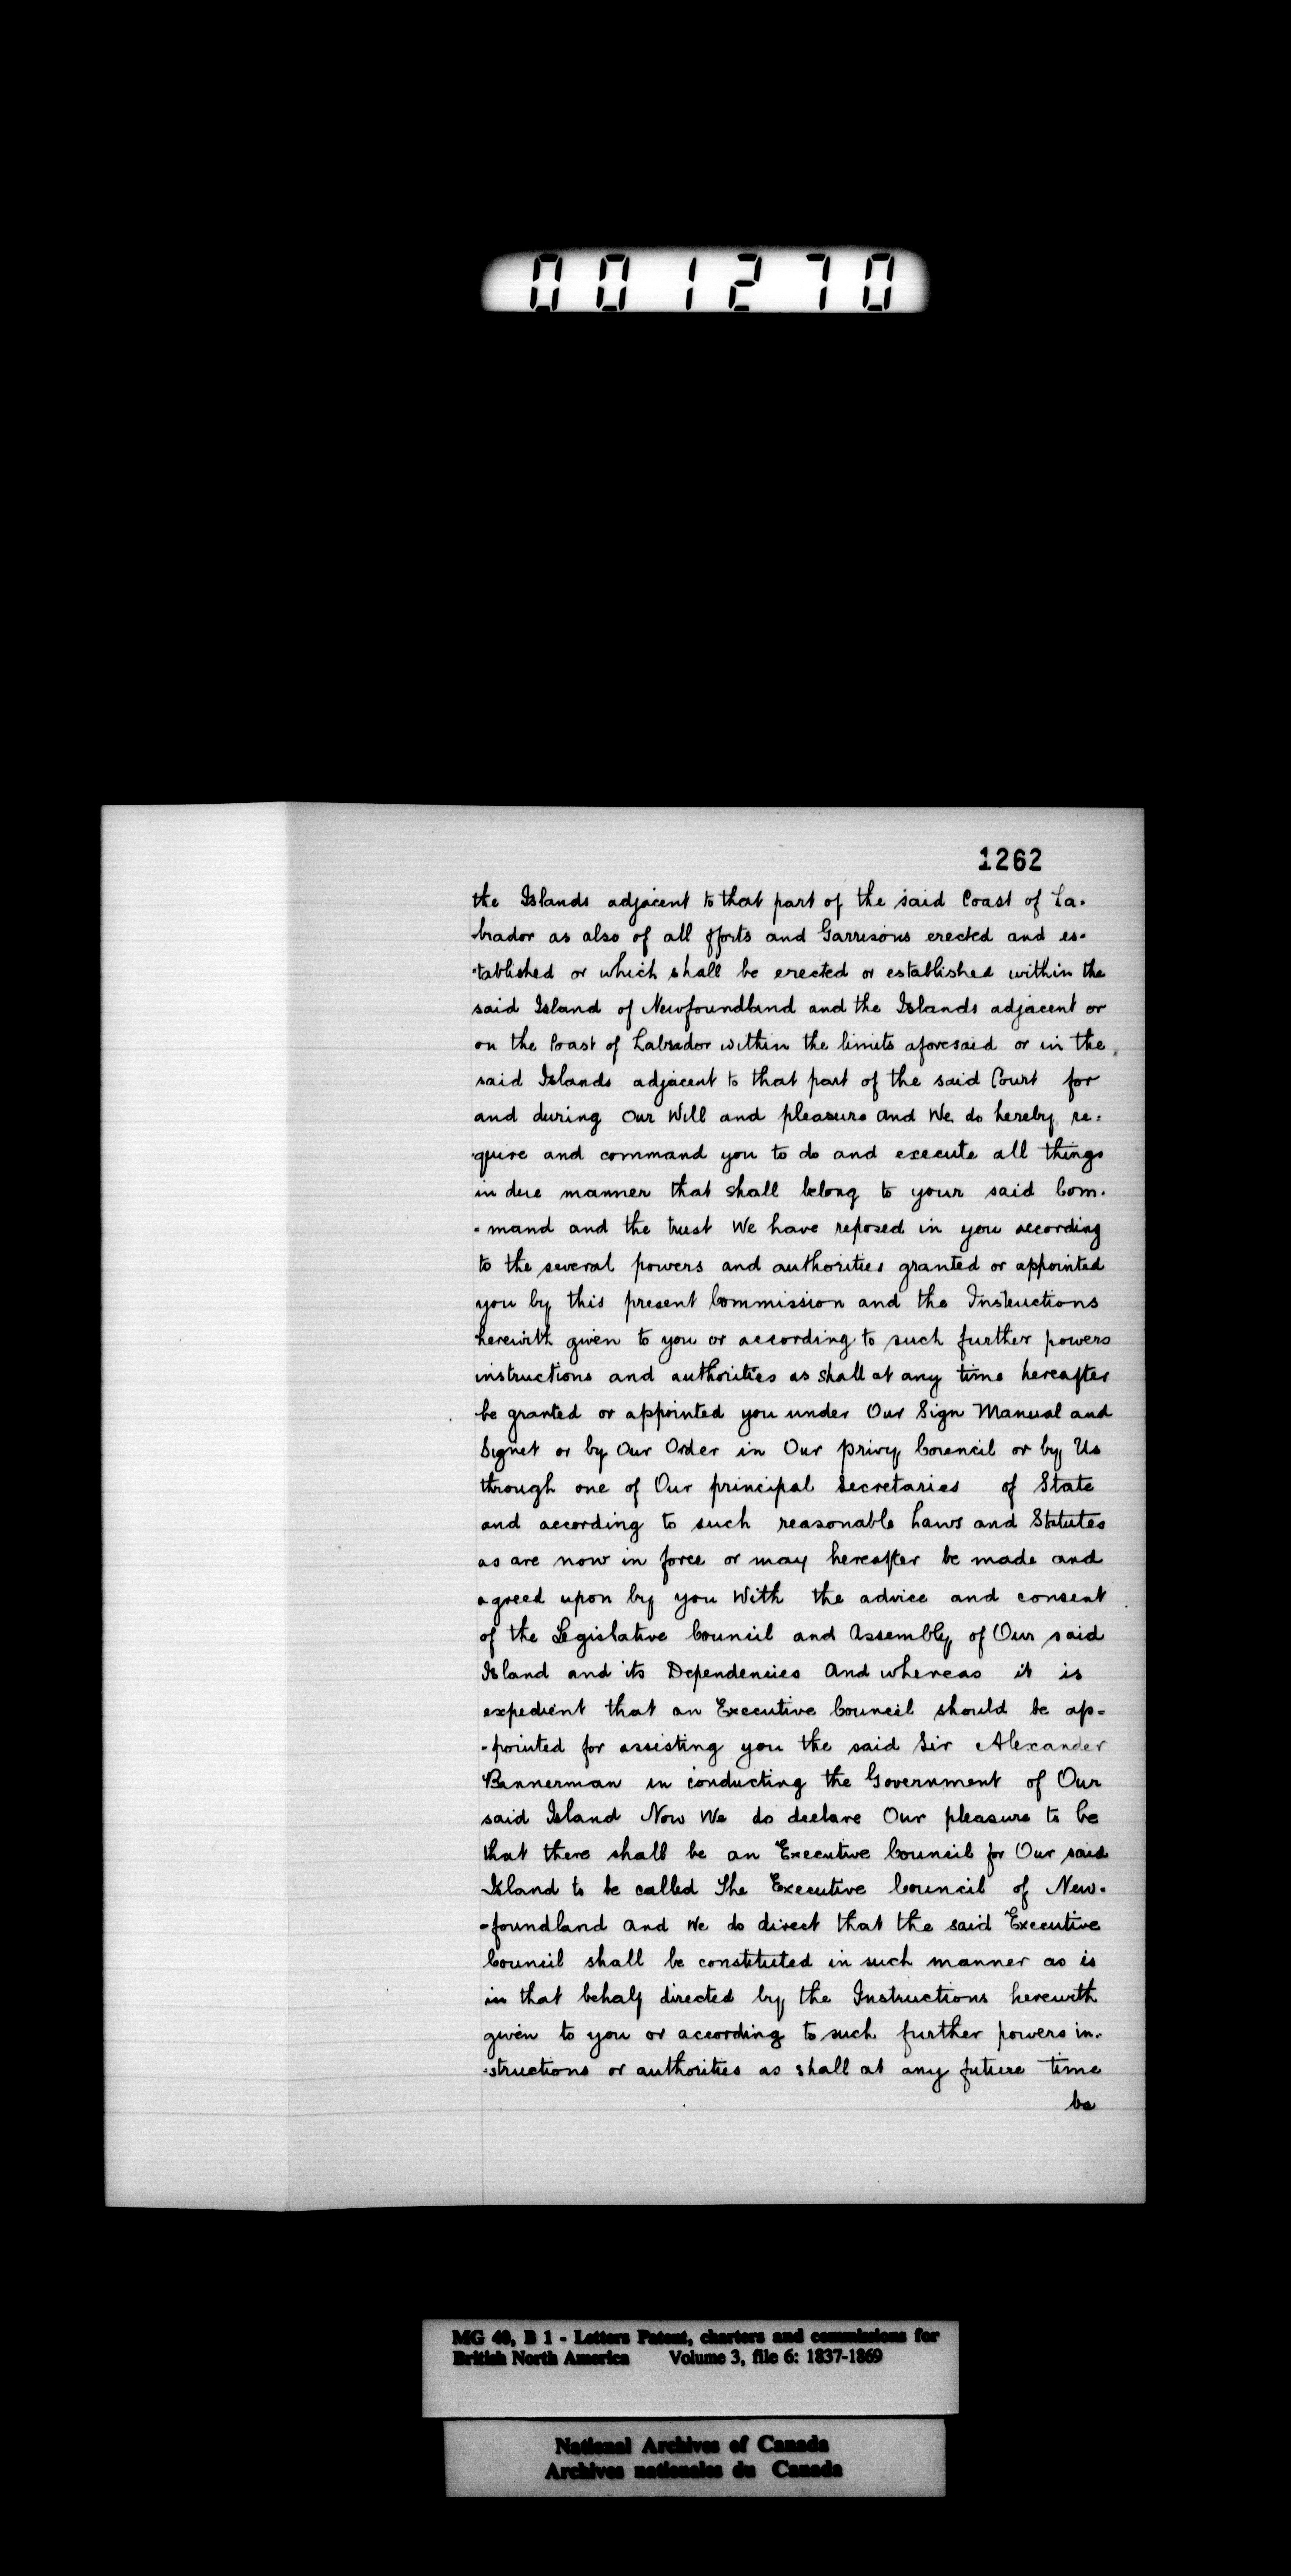 001270
1262
the Islands adjacent to that part of the said Coast of La-
-brador as also of all fforts and Garrisons erected and es-
-tablished or which shall be erected or established within the
said Island of Newfoundland and the Islands adjacent or
on the Coast of Labrador within the limits aforesaid or in the
said Islands adjacent to that part of the said Court for
and during Our Will and pleasure and We do hereby re-
-quire and command you to do and execute all things
in due manner that shall belong to your said Com-
-mand and the trust We have reposed in you according
to the several powers and authorities granted or appointed
you by this present Commission and the Instructions
herewith given to you or according to such further powers
instructions and authorities as shall at any time hereafter
be granted or appointed you under Our Sign Manual and
Signet or by Our Order in Our Privy Council or by Us
through one of Our principal Secretaries of State
and according to such reasonable Laws and Statutes
as are now in force or may hereafter be made and
agreed upon by you With the advice and consent
of the Legislative Council and Assembly of Our said
Island and its Dependencies And whereas it is
expedient that an Executive Council should be ap-
-pointed for assisting you the said Sir Alexander
Bannerman in conducting the Government of Our
said Island Now We do declare Our pleasure to be
that there shall be an Executive Council for Our said
Island to be called The Executive Council of New-
-foundland and We do direct that the said Executive
Council shall be constituted in such manner as is
in that behalf directed by the Instructions herewith
given to you or according to such further powers in-
-structions or authorities as shall at any future time
be
MG 40, B 1 - Letters Patent, charters and commissions for
British North America Volume 3, file 6: 1837-1869
National Archives of Canada
Archives nationales du Canada